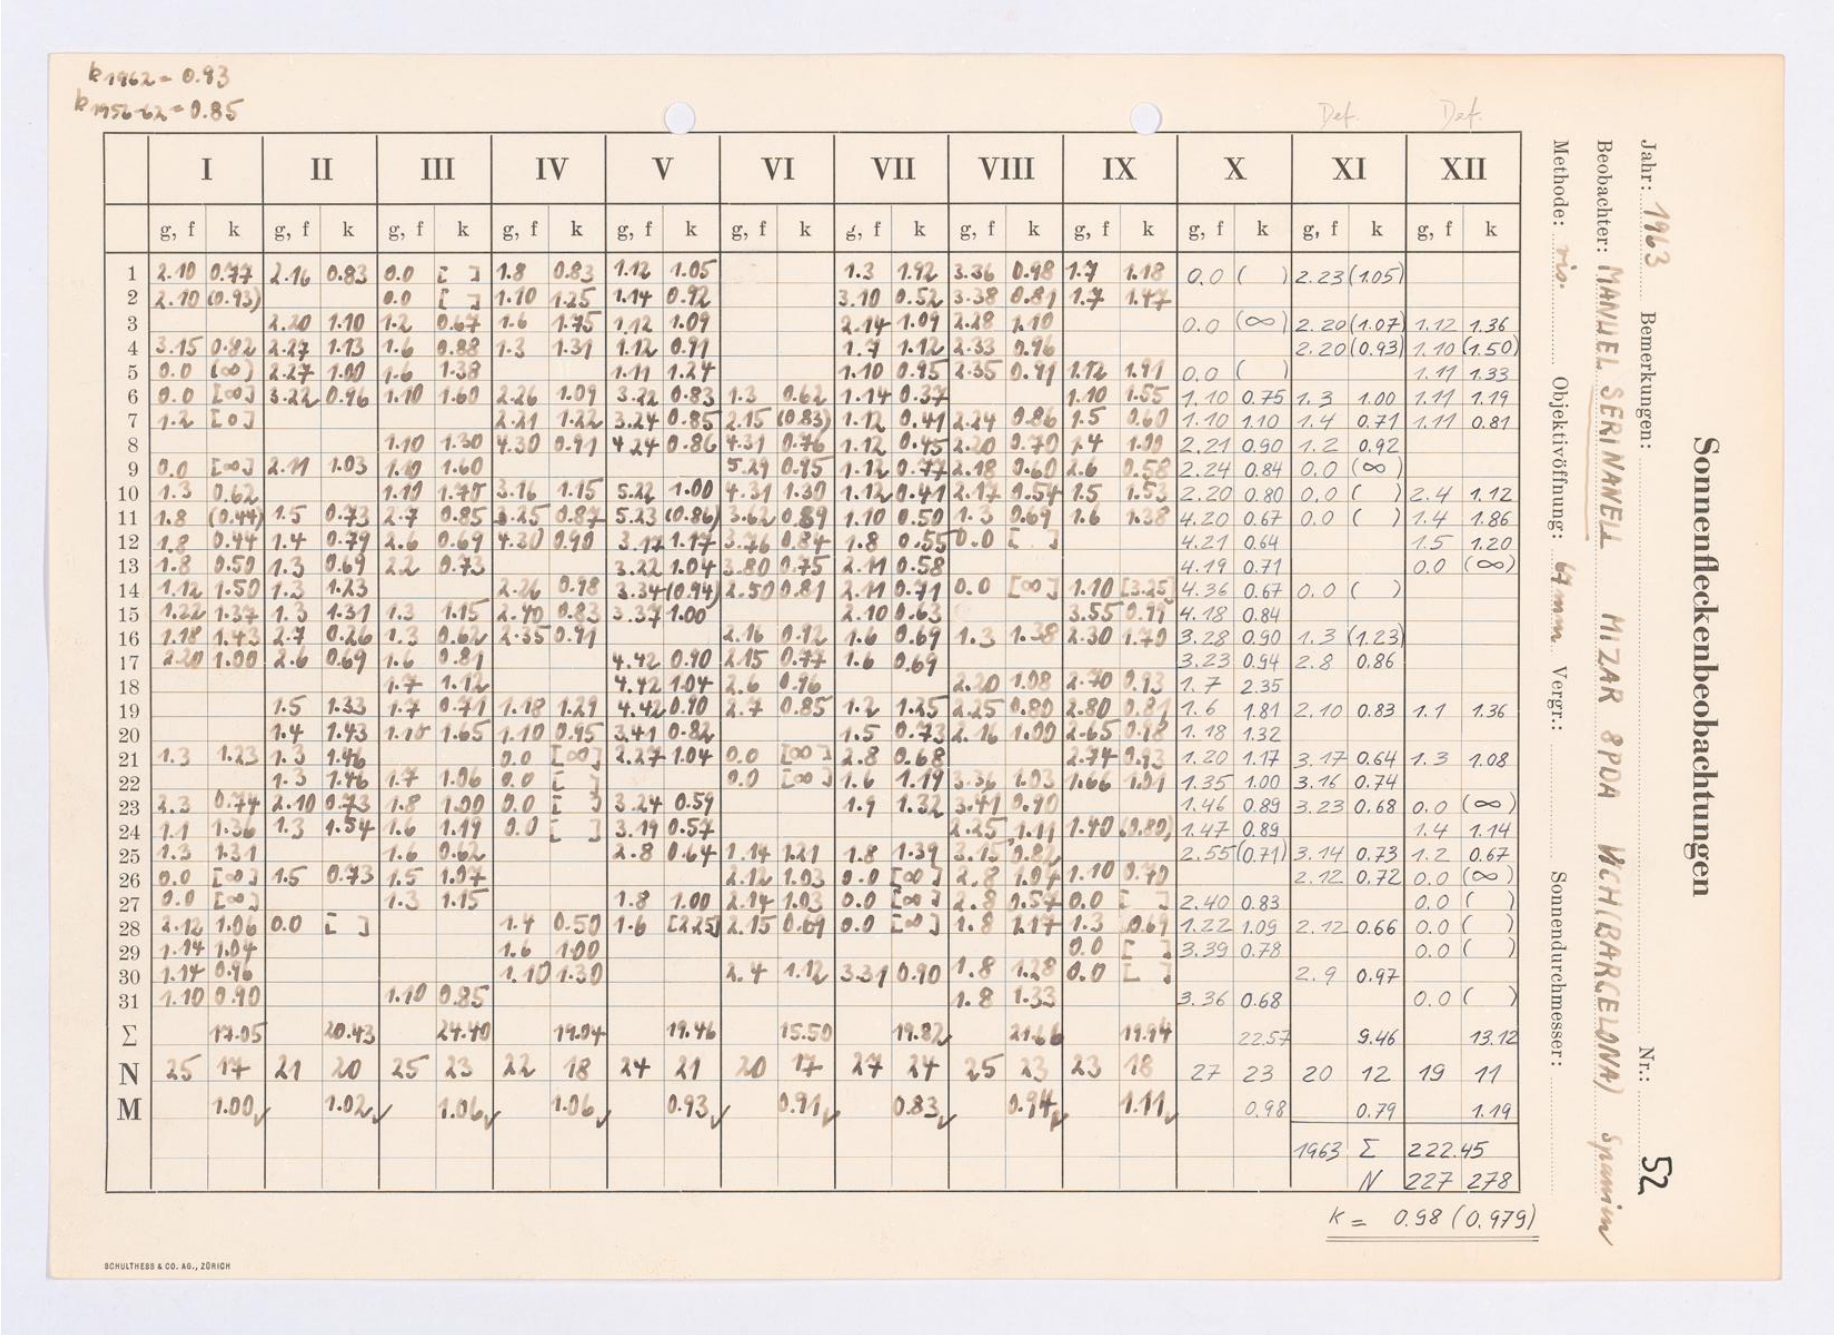 k 1962 = 0.93
k 1956-62 = 0.85
Def. Def.
I II III IV V VI VII VIII IX X XI XII
g, f k g, f k g, f k g, f k g, f k g, f k g, f k g, f k g, f k g, f k g, f k g, f k
1 2.10 0.77 2.16 0.83 0.0 [ ] 1.8 0.83 1.12 1.05 1.3 1.92 3.36 0.98 1.7 1.18 0.0 ( ) 2.23 (1.05)
2 2.10 (0.93) 0.0 [ ] 1.10 1.25 1.14 0.92 3.10 0.52 3.38 0.81 1.7 1.47
3 2.20 1.10 1.2 0.67 1.6 1.75 1.12 1.09 2.14 1.09 2.28 1.10 0.0 (∞) 2.20 (1.07) 1.12 1.36
4 3.15 0.82 2.27 1.13 1.6 0.88 1.3 1.31 1.12 0.91 1.7 1.12 2.33 0.96 2.20 (0.93) 1.10 (1.50)
5 0.0 (∞) 2.27 1.00 1.6 1.38 1.11 1.24 1.10 0.95 2.35 0.91 1.12 1.91 0.0 ( ) 1.11 1.33
6 0.0 [∞] 3.22 0.96 1.10 1.60 2.26 1.09 3.22 0.83 1.3 0.62 1.14 0.37 1.10 1.55 1.10 0.75 1.3 1.00 1.11 1.19
7 1.2 [0] 2.21 1.22 3.24 0.85 2.15 (0.83) 1.12 0.41 2.24 0.86 1.5 0.60 1.10 1.10 1.4 0.71 1.11 0.81
8 1.10 1.30 4.30 0.91 4.24 0.86 4.31 0.76 1.12 0.45 2.20 0.70 1.4 1.00 2.21 0.90 1.2 0.92
9 0.0 [∞] 2.11 1.03 1.10 1.60 5.29 0.95 1.12 0.77 2.18 0.60 2.6 0.58 2.24 0.84 0.0 (∞)
10 1.3 0.62 1.10 1.70 3.16 1.15 5.22 1.00 4.31 1.30 1.12 0.41 2.17 0.54 1.5 1.53 2.20 0.80 0.0 ( ) 2.4 1.12
11 1.8 (0.44) 1.5 0.73 2.7 0.85 3.25 0.87 5.23 (0.86) 3.62 0.89 1.10 0.50 1.3 0.69 1.6 1.38 4.20 0.67 0.0 ( ) 1.4 1.86
12 1.8 0.44 1.4 0.79 2.6 0.69 4.30 0.90 3.17 1.17 3.76 0.84 1.8 0.55 0.0 [ ] 4.21 0.64 1.5 1.20
13 1.8 0.50 1.3 0.69 2.2 0.73 3.22 1.04 3.80 0.75 2.11 0.58 4.19 0.71 0.0 (∞)
14 1.12 1.50 1.3 1.23 2.26 0.98 3.34 (0.94) 2.50 0.81 2.11 0.71 0.0 [∞] 1.10 [3.25] 4.36 0.67 0.0 ( )
15 1.22 1.37 1.3 1.31 1.3 1.15 2.40 0.83 3.37 1.00 2.10 0.63 3.55 0.99 4.18 0.84
16 1.18 1.43 2.7 0.26 1.3 0.62 2.35 0.91 2.16 0.92 1.6 0.69 1.3 1.38 2.30 1.70 3.28 0.90 1.3 (1.23)
17 2.20 1.00 2.6 0.69 1.6 0.81 4.42 0.90 2.15 0.77 1.6 0.69 3.23 0.94 2.8 0.86
18 1.7 1.12 4.42 1.04 2.6 0.96 2.20 1.08 2.70 0.93 1.7 2.35
19 1.5 1.33 1.7 0.71 1.18 1.29 4.42 0.90 2.7 0.85 1.2 1.25 2.25 0.80 2.80 0.81 1.6 1.81 2.10 0.83 1.1 1.36
20 1.4 1.43 1.10 1.65 1.10 0.95 3.41 0.82 1.5 0.73 2.16 1.00 2.65 0.98 1.18 1.32
21 1.3 1.23 1.3 1.46 0.0 [∞] 2.27 1.04 0.0 [∞] 2.8 0.68 2.74 0.93 1.20 1.17 3.17 0.64 1.3 1.08
22 1.3 1.46 1.7 1.06 0.0 [ ] 0.0 [∞] 1.6 1.19 3.36 1.03 1.66 1.01 1.35 1.00 3.16 0.74
23 2.3 0.74 2.10 0.73 1.8 1.00 0.0 [ ] 3.24 0.59 1.9 1.32 3.41 0.90 1.46 0.89 3.23 0.68 0.0 (∞)
24 1.1 1.36 1.3 1.54 1.6 1.19 0.0 [ ] 3.19 0.57 2.25 1.11 1.40 (0.80) 1.47 0.89 1.4 1.14
25 1.3 1.31 1.6 0.62 2.8 0.64 1.14 1.21 1.8 1.39 3.15 0.82 2.55 (0.71) 3.14 0.73 1.2 0.67
26 0.0 [∞] 1.5 0.73 1.5 1.07 2.12 1.03 0.0 [∞] 2.8 1.04 1.10 0.70 2.12 0.72 0.0 (∞)
27 0.0 [∞] 1.3 1.15 1.8 1.00 2.14 1.03 0.0 [∞] 2.8 0.57 0.0 [ ] 2.40 0.83 0.0 ( )
28 2.12 1.06 0.0 [ ] 1.4 0.50 1.6 [2.25] 2.15 0.69 0.0 [∞] 1.8 1.17 1.3 0.69 1.22 1.09 2.12 0.66 0.0 ( )
29 1.14 1.04 1.6 1.00 0.0 [ ] 3.39 0.78 0.0 ( )
30 1.14 0.96 1.10 1.30 2.4 1.12 3.31 0.90 1.8 1.28 0.0 [ ] 2.9 0.97
31 1.10 0.90 1.10 0.85 1.8 1.33 3.36 0.68 0.0 ( )
Σ 17.05 20.43 24.40 19.04 19.46 15.50 19.82 21.66 19.94 22.57 9.46 13.12
N 25 17 21 20 25 23 22 18 24 21 20 17 27 24 25 23 23 18 27 23 20 12 19 11
M 1.00✓ 1.02✓ 1.06✓ 1.06✓ 0.93✓ 0.91✓ 0.83✓ 0.94✓ 1.11✓ 0.98 0.79 1.19
1963 Σ 222.45
N 227 278
k = 0.98 (0.979)
SCHULTHESS & CO. AG., ZÜRICH
Sonnenfleckenbeobachtungen
Jahr: 1963 Bemerkungen: Nr.: 52
Beobachter: MANUEL SERINANELL MIZAR 8PDA VICH (BARCELONA) Spanien
Methode: vis. Objektivöffnung: 67 mm Vergr.: Sonnendurchmesser: